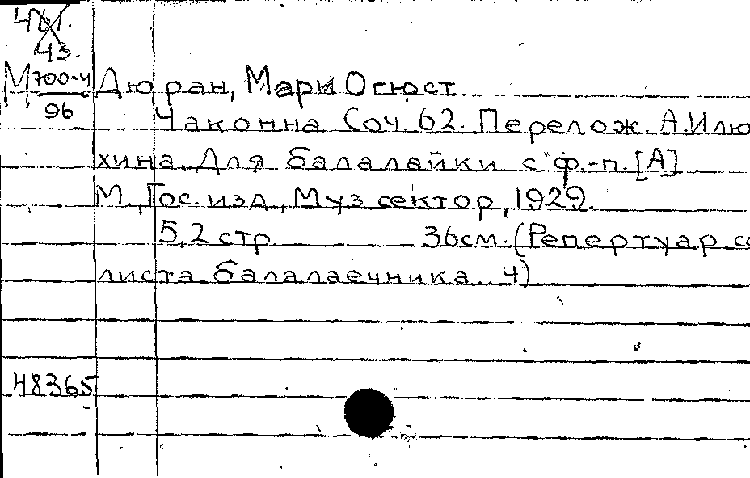 461.
43.
М 700-4 Дюран, Мари Огюст.
96
Чаконна Соч. 62. Перелож. А. Илю
хина. Для балалайки с ф.-п. [А]
М., Гос. изд., Муз сектор, 1929.
5,2 стр. 36см. (Репертуар со
листа балалаечника. 4)
48365